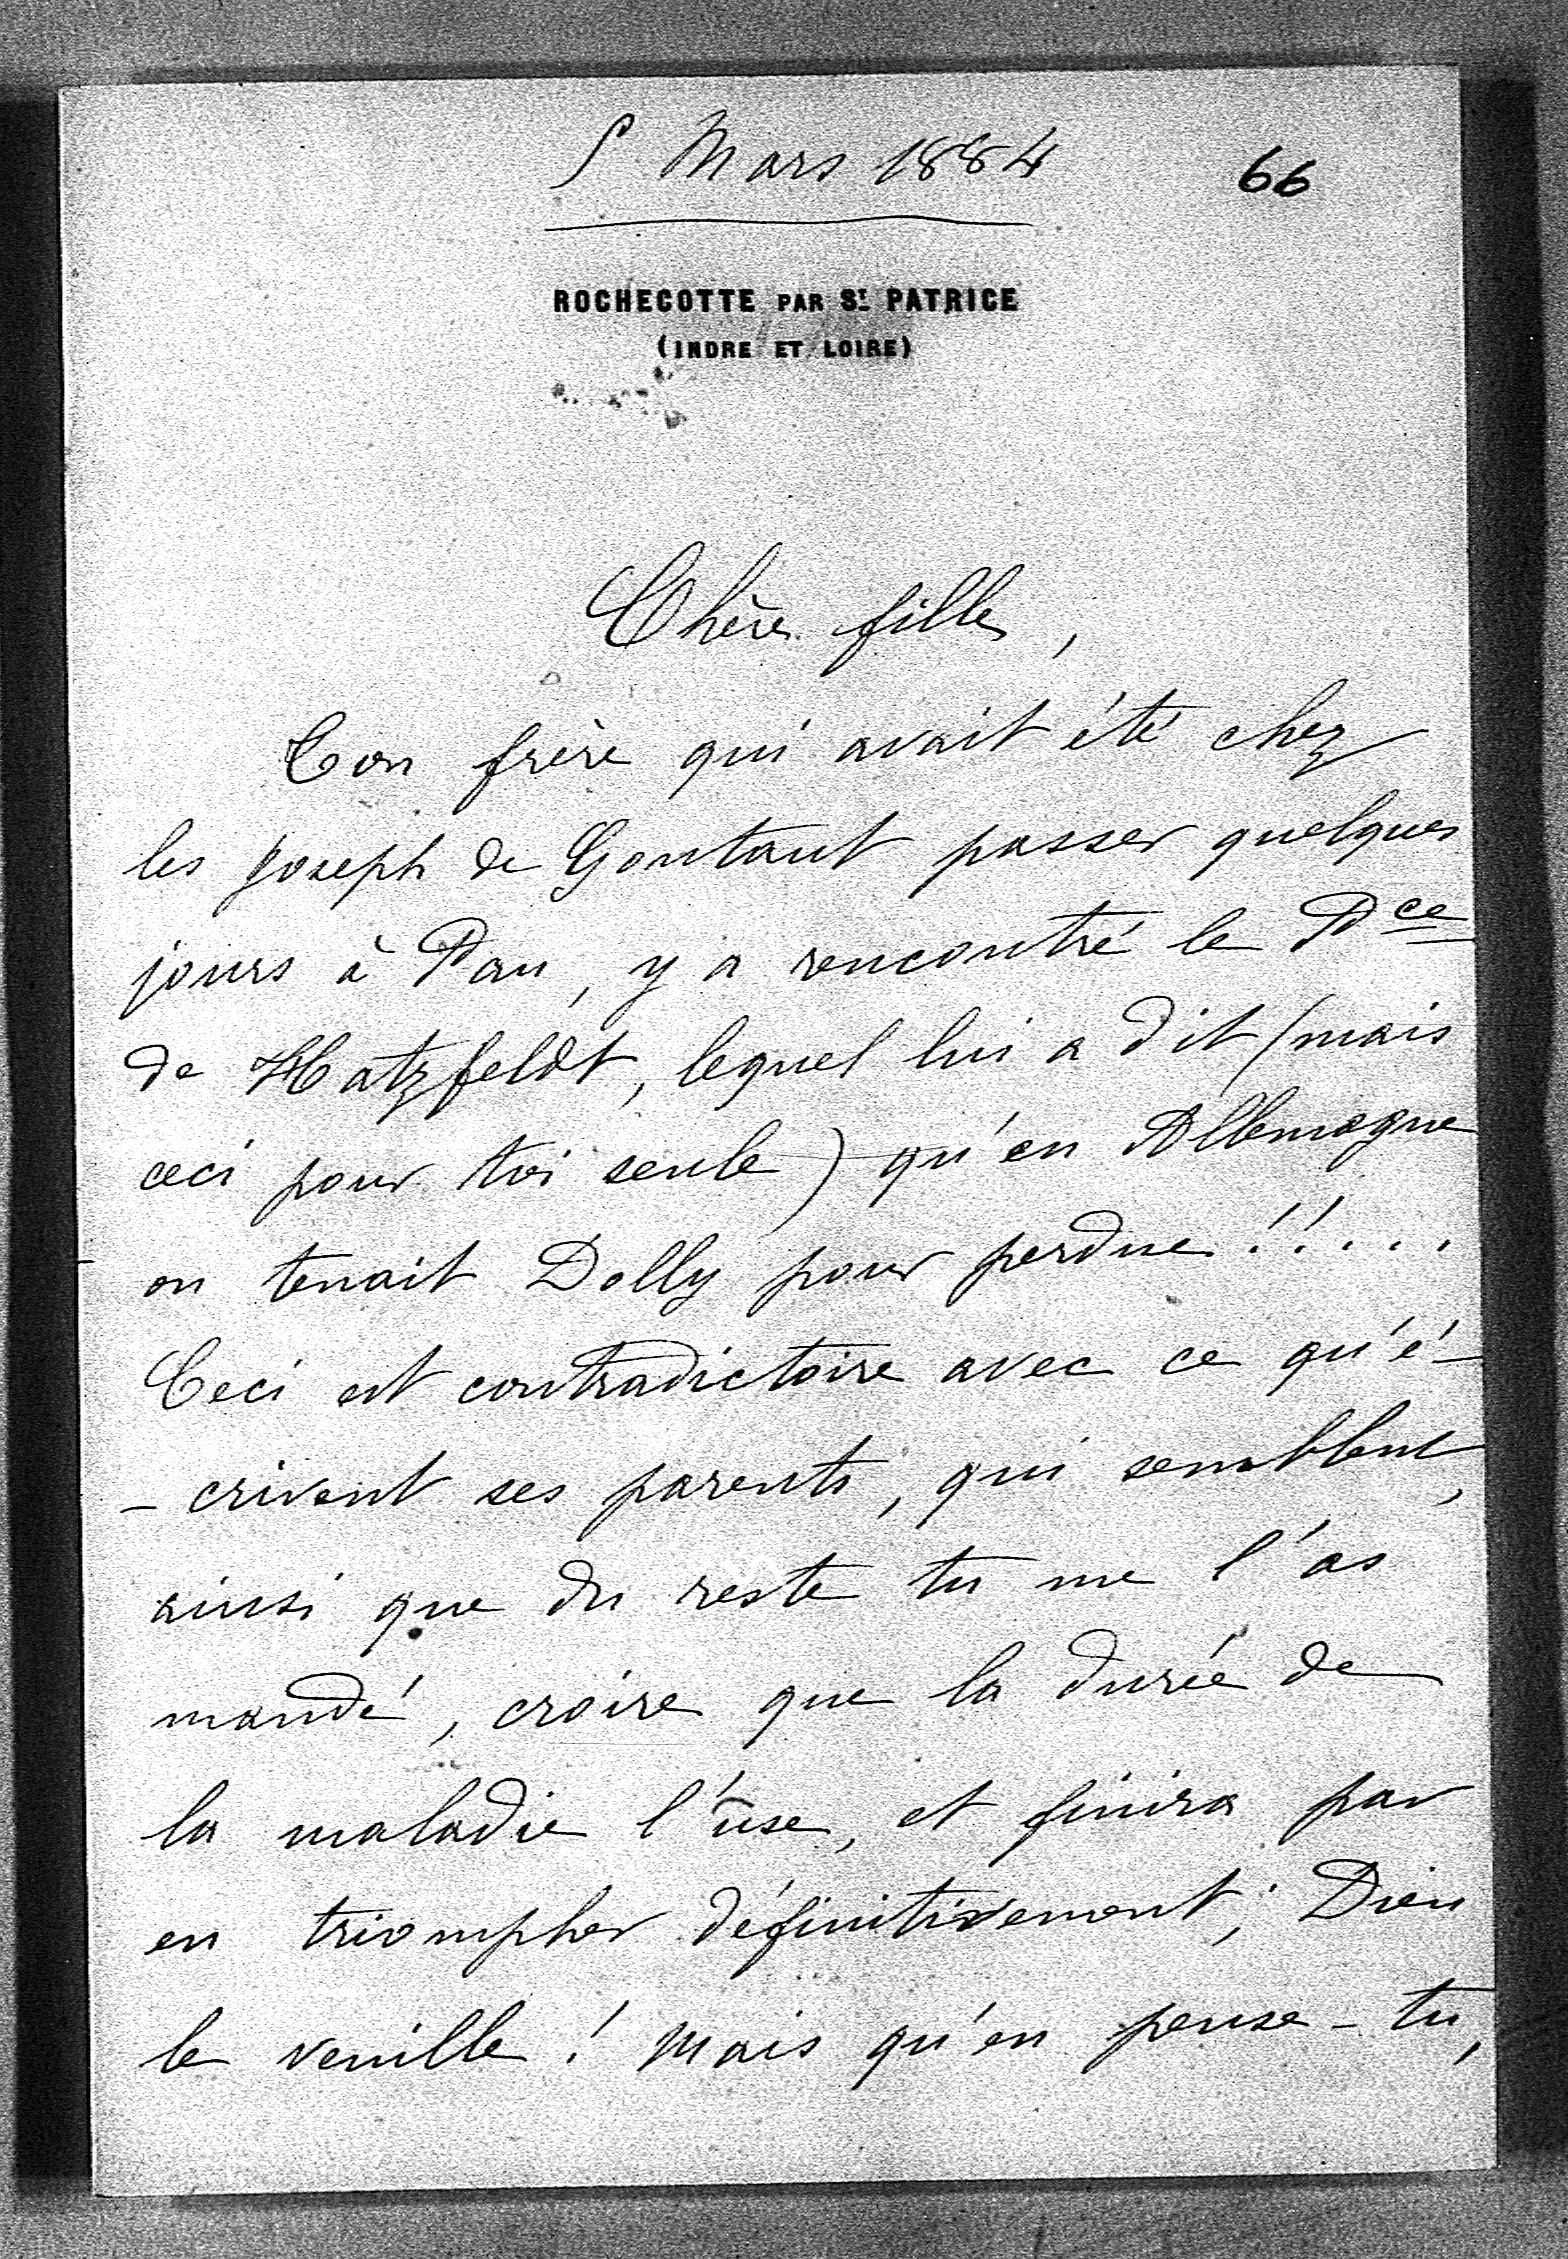 5 Mars 1884
66
ROCHECOTTE PAR ST. PATRICE
(INDRE ET LOIRE)
Chère fille,
Ton frère qui avait été chez
les Joseph de Gontaut passer quelques
jours à Pau, y a rencontré le Pce
de Hatzfeldt, lequel lui a dit (mais
ceci pour toi seule) qu'en Allemagne
on tenait Dolly pour perdue!!...
Ceci est contradictoire avec ce qu'é-
-crivent ses parents, qui semblent,
ainsi que du reste tu me l'as
mandé, croire que la durée de
la maladie l'use, et finira par
en triompher définitivement; Dieu
le veuille! Mais qu'en pense-tu,